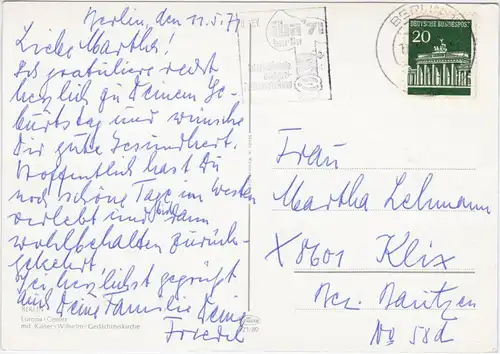 Berlin, den 11.5.77
Liebe Martha!
Ich gratuliere recht
herzlich zu Deinem Ge-
burtstag und wünsche
Dir gute Gesundheit.
Hoffentlich hast Du
noch schöne Tage im Westen
verlebt und bist dann
wohlbehalten zurück-
gekehrt.
Sei herzlichst gegrüßt
und Deine Familie Deine
Friedel
BERLIN
Europa-Center
mit Kaiser-Wilhelm-Gedächtniskirche
berlin
BERLIN
DEUTSCHE BUNDESPOST
20
Frau
Martha Lehmann
X 8601 Klix
Bez. Bautzen
No 58d